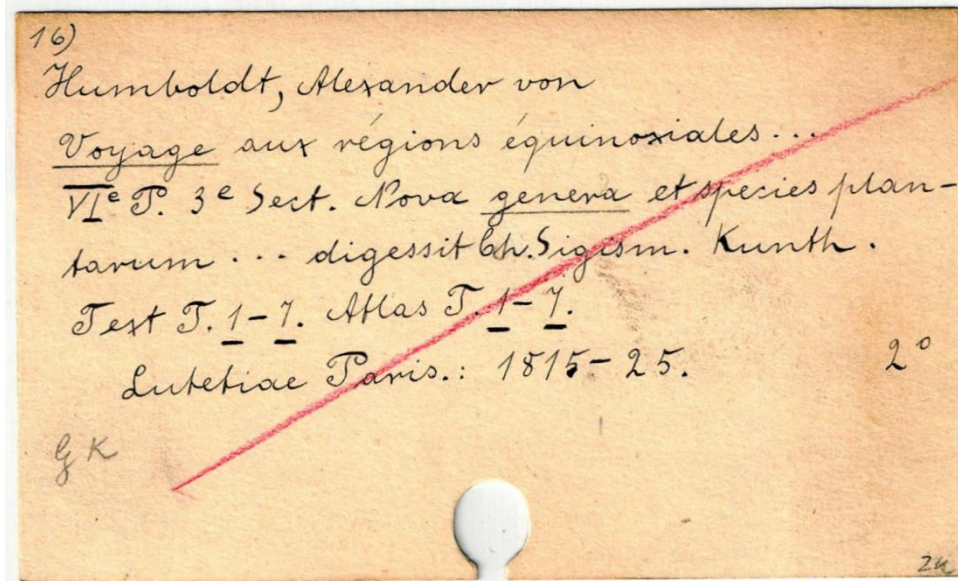 16)
Humboldt, Alexander von
Voyage aux régions équinoxiales...
VIe P. 3e Sect. Nova genera et species plan-
tarum ... digessit Ch. Sigism. Kunth.
Text T. 1-7. Atlas T. 1-7.
Lutetiae Paris.: 1815-25. 2°
GK